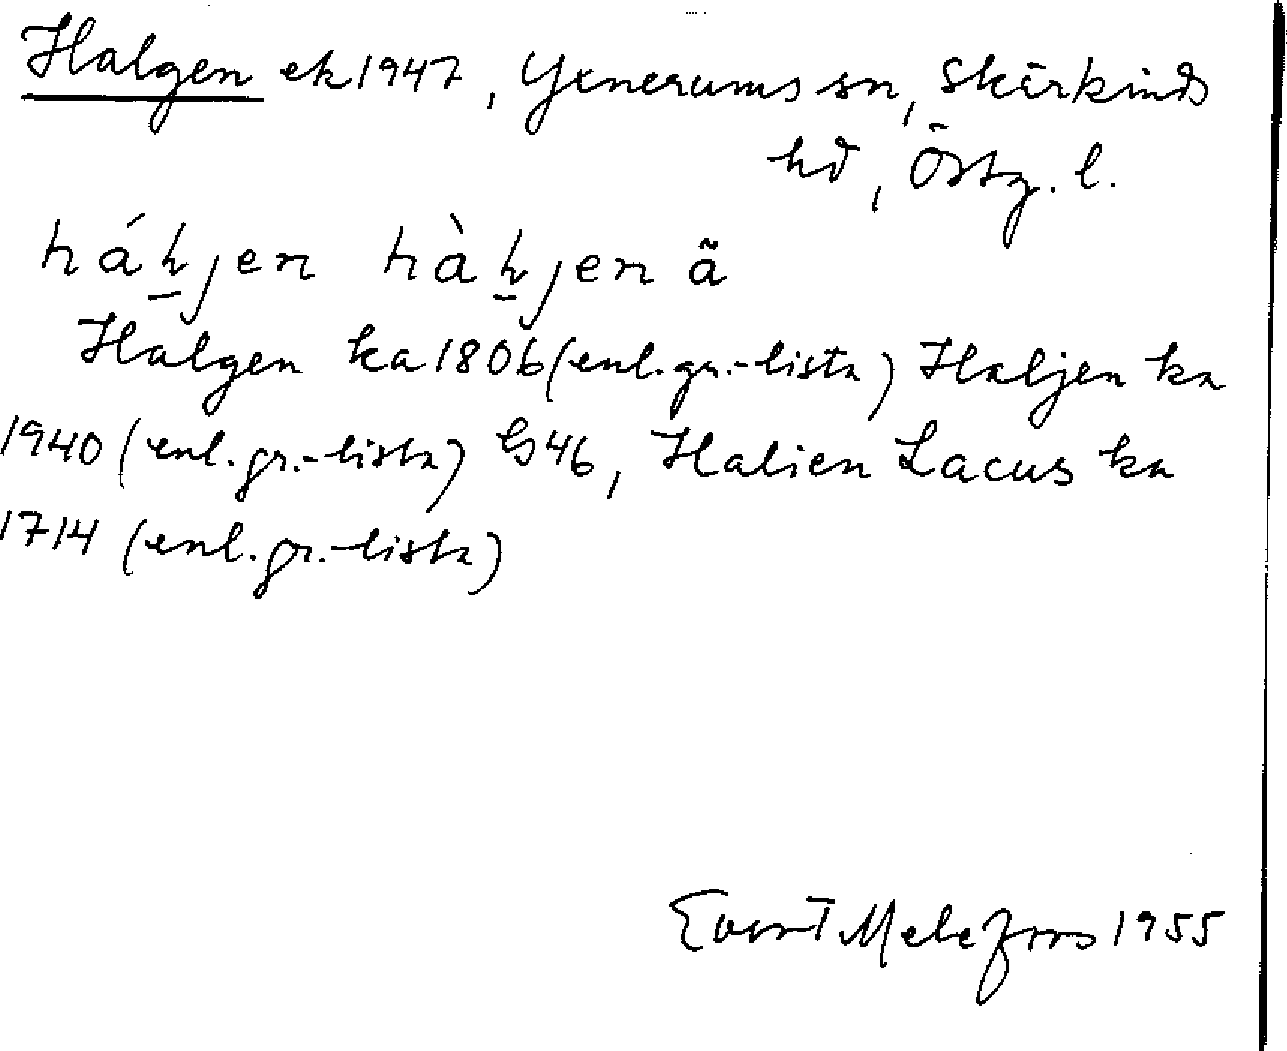 Halgen ek 1947, Yxnerums sn, Skärkinds
hd, Östg. l.
háḥjen hàḥjen ã
Halgen ka 1806 (enl. gr.-lista) Haljen ka
1940 (enl. gr.-lista) G46, Halien Lacus ka
1714 (enl. gr.-lista)
Evert Melefors 1955